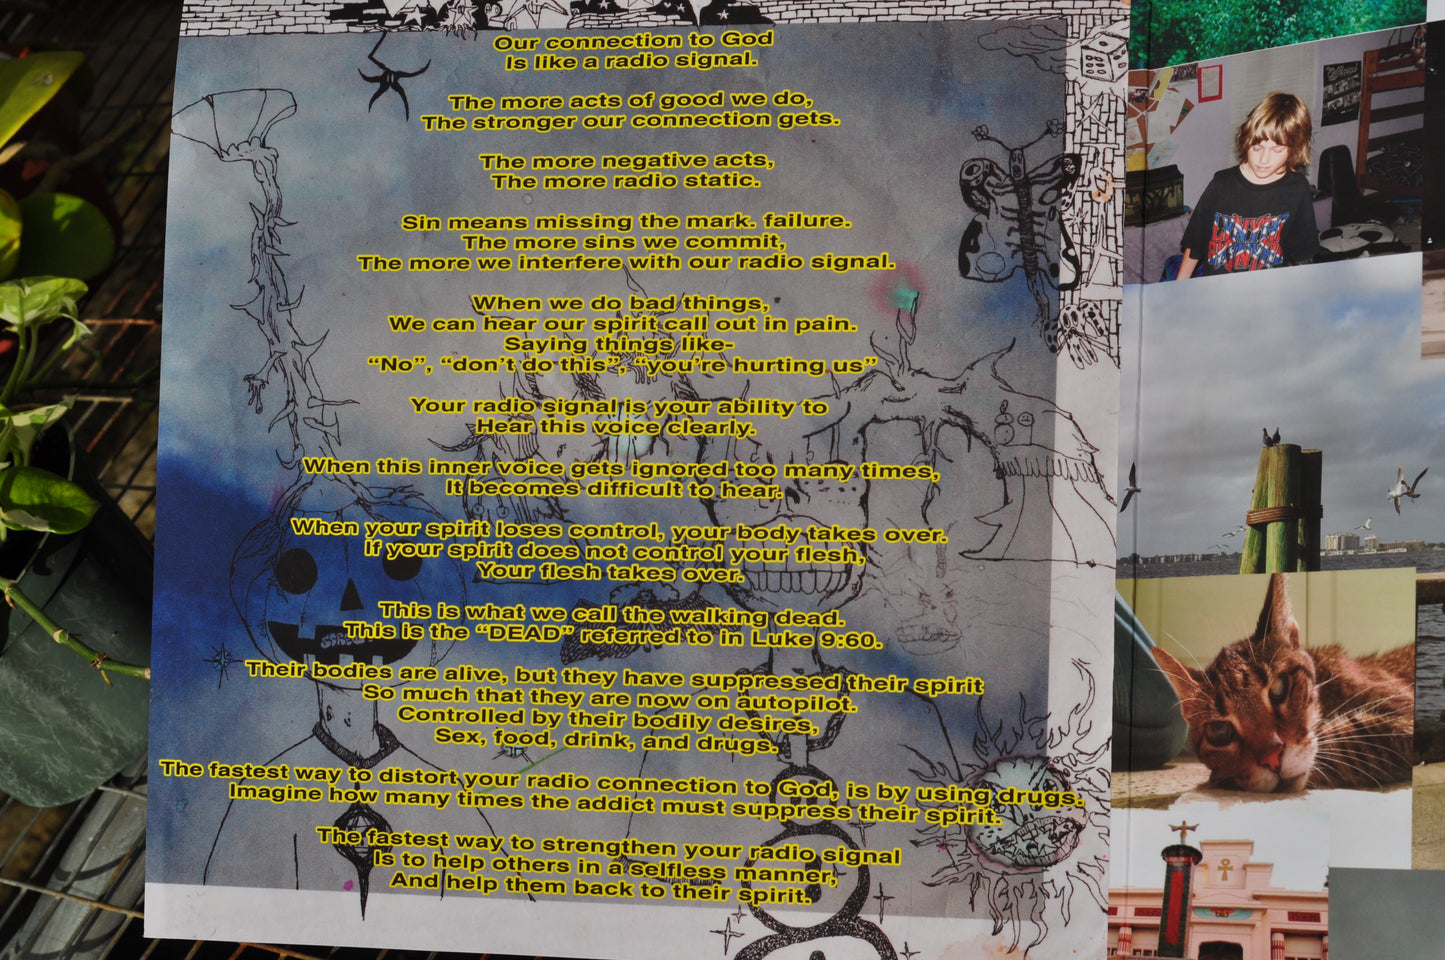 Our connection to God
Is like a radio signal.
The more acts of good we do,
The stronger our connection gets.
The more negative acts,
The more radio static.
Sin means missing the mark. failure.
The more sins we commit,
The more we interfere with our radio signal.
When we do bad things,
We can hear our spirit call out in pain.
Saying things like-
“No”, “don’t do this”, “you’re hurting us”
Your radio signal is your ability to
Hear this voice clearly.
When this inner voice gets ignored too many times,
It becomes difficult to hear.
When your spirit loses control, your body takes over.
If your spirit does not control your flesh,
Your flesh takes over.
This is what we call the walking dead.
This is the “DEAD” referred to in Luke 9:60.
Their bodies are alive, but they have suppressed their spirit
So much that they are now on autopilot.
Controlled by their bodily desires,
Sex, food, drink, and drugs.
The fastest way to distort your radio connection to God, is by using drugs.
Imagine how many times the addict must suppress their spirit.
The fastest way to strengthen your radio signal
Is to help others in a selfless manner,
And help them back to their spirit.